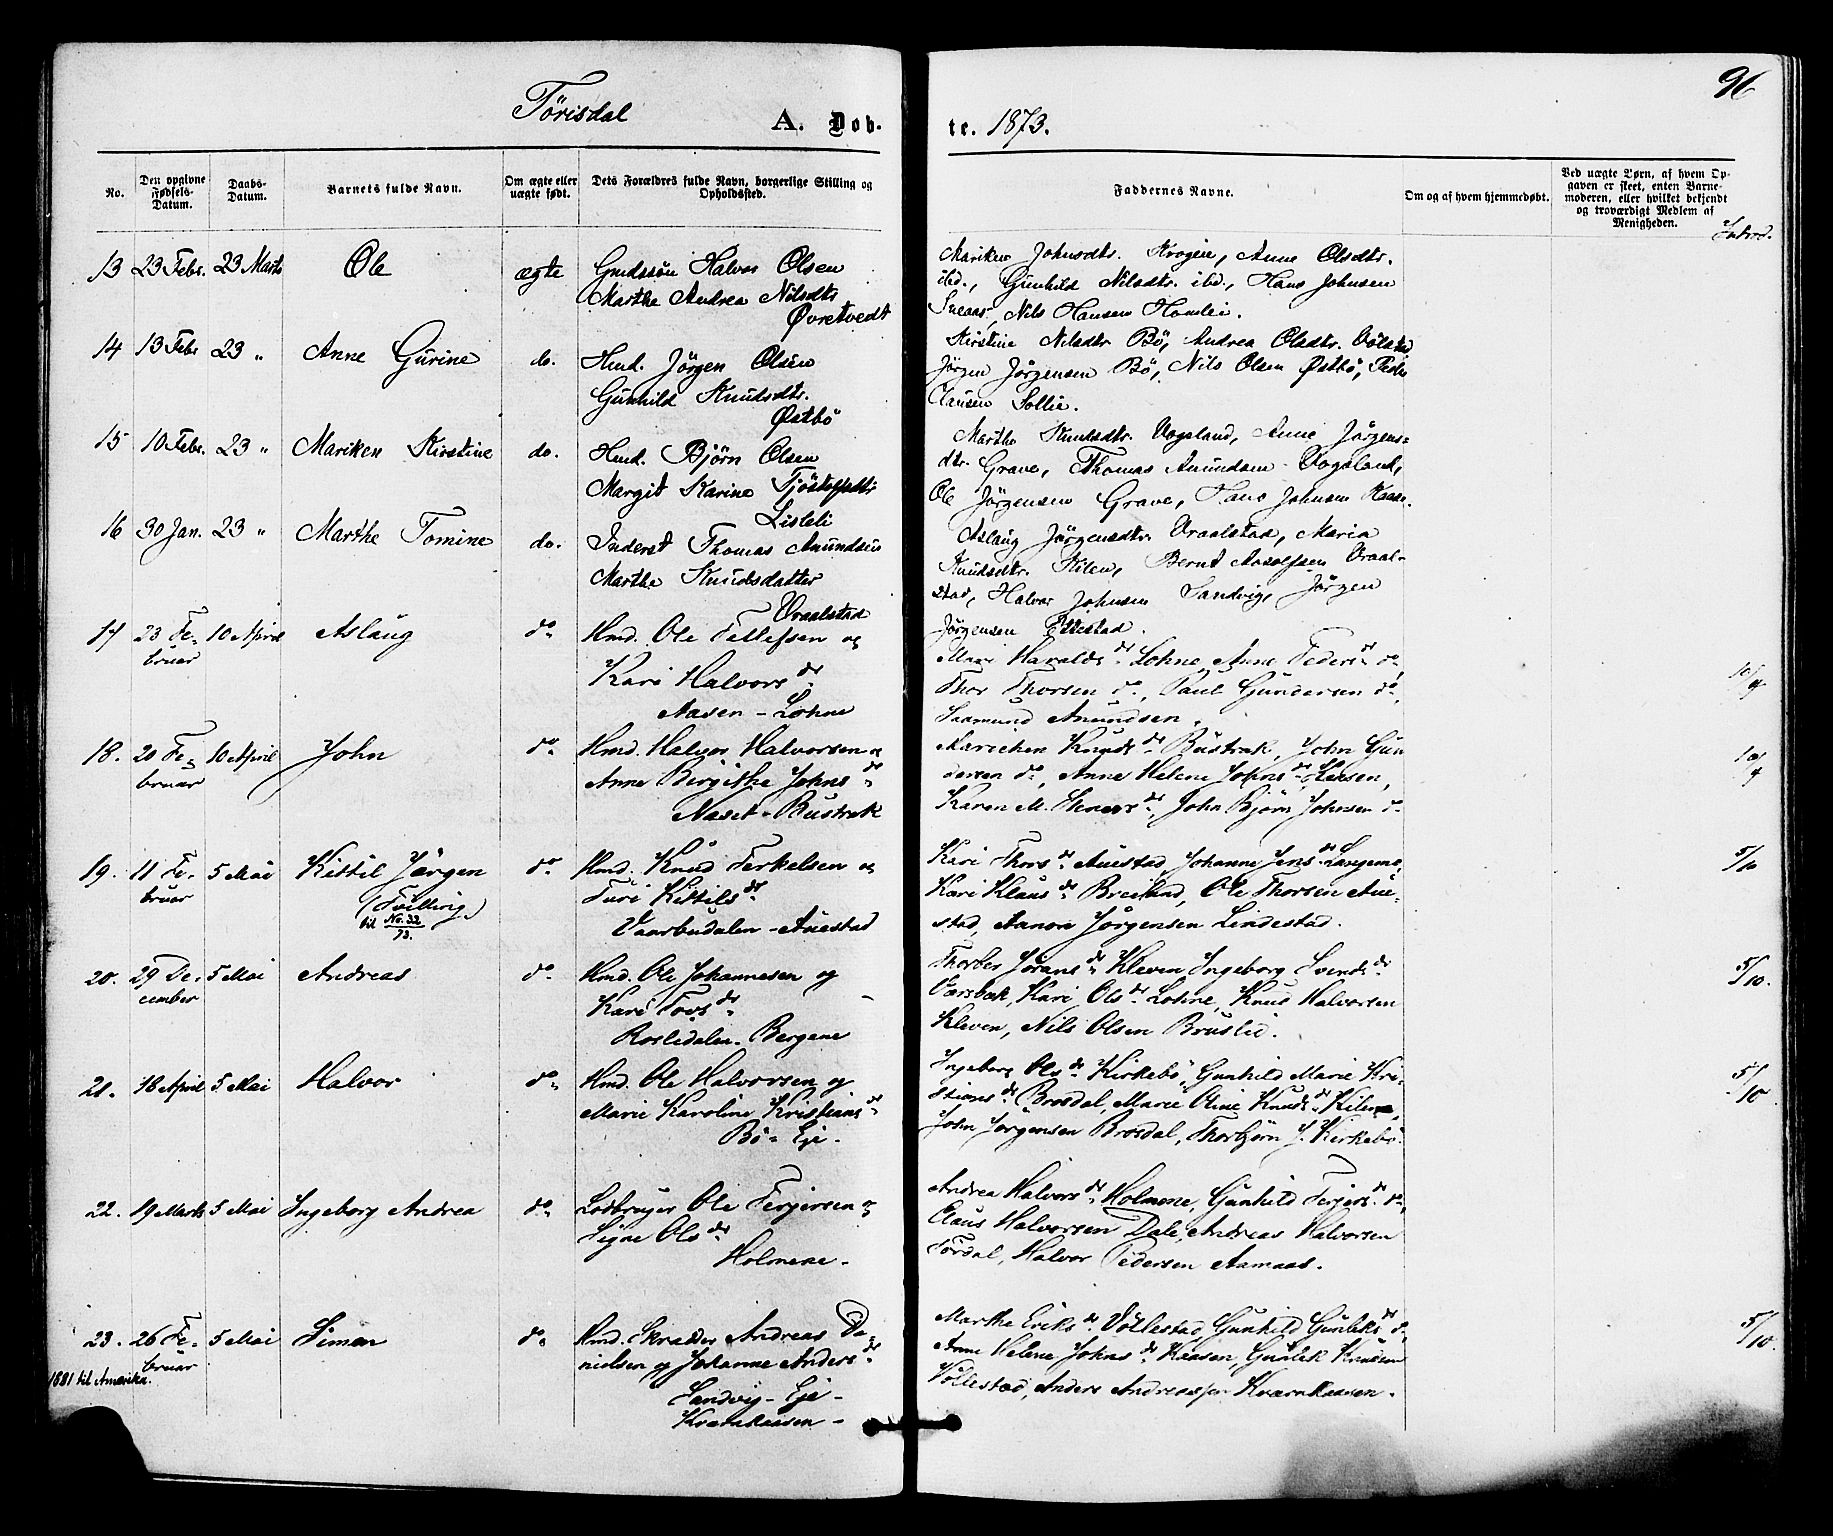 96
Törisdal
A. Døb-
te. 1873.
No.
Den opgivne Fødsels-Datum.
Daabs-Datum.
Barnets fulde Navn.
Om ægte eller uægte født.
Dets Forældres fulde Navn, borgerlige Stilling og Opholdssted.
Faddernes Navne.
Om og af hvem hjemmedøbt.
Ved uægte Børn, af hvem Opgaven er skeet, enten Barnemoderen, eller hvilket bekjendt og troværdigt Medlem af Menigheden.
Introd.
13 23 Febr. 23 Marts Ole ægte Gaardssön Halvor Olsen
Marthe Andrea Nilsdtr
Øvretvedt
Mariken Johnsdtr. Krogen, Anne Olsdtr.
ibd., Gunhild Nilsdtr. ibd, Hans Johnsen
Sneaas, Nils Hansen Homlei.
14 13 Febr 23 " Anne Gurine do. Hmd. Jörgen Olsen
Gunhild Knudsdtr.
Østbö
Kirstine Nilsdtr Bö, Andrea Olsdtr.
Jörgen Jörgensen Bö, Nils Olsen Østbö, Peder
Clausen Sollie.
15 10 Febr. 23 " Mariken Kirstine do. Hmd. Björn Olsen
Margit Karine Tjöstolfsdtr
Listeli
Marthe Knudsdtr. Vogsland, Anne Jörgens-
dtr. Grave, Thomas Anundsen Vogsland,
Ole Jörgensen Grave, Hans Johnsen Kaasa.
16 30 Jan. 23 " Marthe Tomine do. Inderst Thomas Anundsen
Marthe Knudsdatter
Vraalstad
Aslaug Jörgensdtr. Vraalstad, Maria
Knudsdtr. Kilen, Bernt Aasolfsen Vraal-
stad, Halvor Johnsen Sandvig, Jörgen
Jörgensen Ettestad.
17 23 Fe- 10 April Aslaug do Hmd. Ole Tellefsen og
bruar
Kari Halvorsdr
Aasen - Lohne
Mari Haraldsdr Lohne, Anne Pedersdr do,
Thor Thorsen do, Paul Gundersen do,
Saamund Anundsen.
10/4
18. 20 Fe- 10 April John do Hmd. Halvor Halvorsen og
bruar
Anne Birgithe Johnsdr
Naset - Bustrak
Marichen Knudsdr Bustrak, John Gun
dersen do, Anne Helene Johnsdr
Karen M. do, John Björn Johnsen do
10/4
19. 11 Fe- 5 Mai Kittil Jörgen do Hmd. Knud Terkelsen og
bruar
(Tvilling)
til No. 32/73.
Turi Kittilsdr
Vaarbudalen - Auestad
Kari Thorsdr Auestad, Johanne Jensdr Langemo,
Kari Klausdr Breiland, Ole Thorsen Aue-
stad, Aanon Jörgensen Lindestad.
5/10
20. 29 De- 5 Mai Andreas do Hmd. Ole Johannesen og
cember
Kari Torsdr
Roslidalen - Bergene
Thorber Joransdr Kleven, Ingeborg Svendsdr
Vaasbak, Kari Olsdr Lohne, Knud Halvorsen
Kleven, Nils Olsen Bruslid.
5/10.
21. 18 April 5 Mai Halvor do Hmd. Ole Halvorsen og
Marie Karoline Kristiansdr
Bö - Eje.
Ingeborg Olsdr Kirkebö, Gunhild Marie Kri-
stiansdr Brosdal, Marie Oline Knudsdr Kilene,
John Jorgensen Brosdal, Thorbjörn J. Kirkebö.
5/10
22. 19 Marts 5 Mai Ingeborg Andrea do Lodbruger Ole Terjersen og
Signe Olsdr
Holmene -
Andrea Halvorsdr Holmene, Gunhild Terjersdr do,
Claus Halvorsen Dale, Andreas Halvorsen
Tördal, Halvor Pedersen Aamaas.
23. 26 Fe- 5 Mai Simon do Hmd. Skrædder Andreas Da-
bruar
1881 til Amerika.
nielsen og Johanne Andersdr
Sandvig - Eje -
Kvarnkaasen -
Marthe Eriksdr Völlestad, Gunhild Gunleksdr do,
Anne Helene Johnsdr Kaasen, Gunlek Knudsen
Völlestad, Anders Andreassen Kvarnkaasen.
5/10.